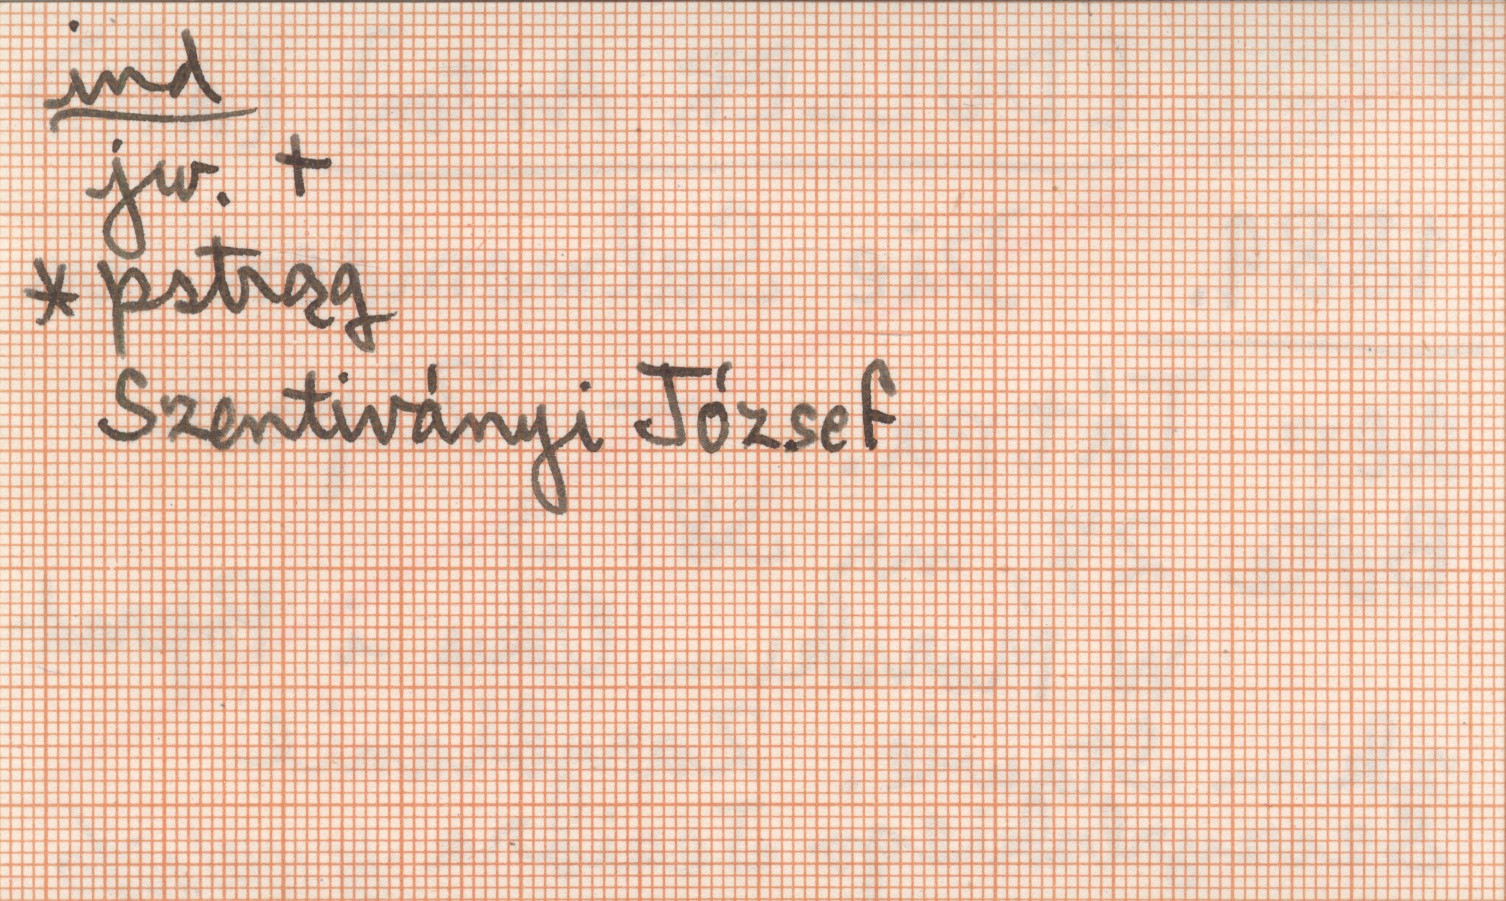 ind
jw. +
* pstrąg
Szentiványi József